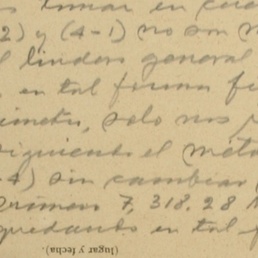 tomar en cue
2) y (4-1) no son
l lindero general
en tal forma fu
solo nos
siguiendo el méto
4) sin cambiar
7,318.28
quedando en tal f
(lugar y fecha).